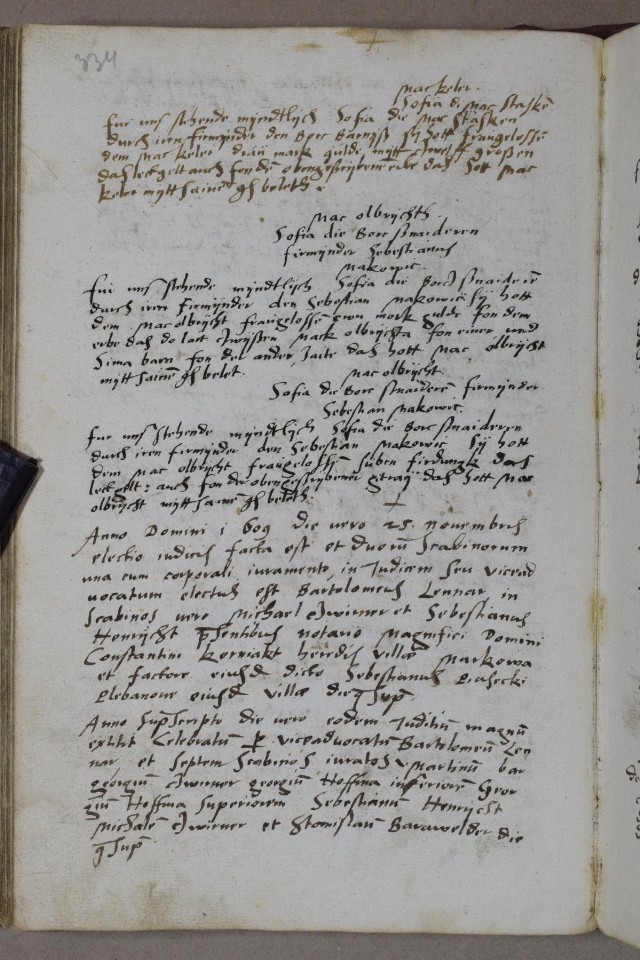 334
Mac keler.
Sofia die Mac stasken
fur uns stehende myndtlych Sofia die Mac stasken
durch iren firmynder den Borc Barnyss sy hott fraugelosse
dem Mac keler drau mark gulde mytt zwelff großen
das leckgelt auch fon dem obengeßrybenem erbe das hott Mac
keler mytt saine gh belett.
Mac olbrychtt.
Sofia die Borc ßnaideren
firmynder Sebestianus
Makowic.
fur uns stehende myndtlych Sofia die Borc ßnaidere
durch iren firmynder den Sebestian Makowic sy hott
dem Mac olbrycht fraugelosse zwu mork gulde fon dem
erbe das do lait zwyssen Mack olbrychta fon einer und
Sima barn fon die ander saite das hott Mac olbrycht
mytt saine gh belet.
Mac olbrycht.
Sofia die Borc ßnaidere firmynder
Sebestian Makowic.
fur uns stehende myndtlych Sofia die Borc ßnaideren
durch iren firmynder den Sebestian Makowic sy hott
dem Mac olbrycht fraugelossen suben firdungk das
leckgelt: auch fon der obengeßrybener das hott Mac
olbrycht mytt saine gh belett.
Anno Domini 1609 die vero 25. novembris
electio iudicis facta est et duoru Scabinorum
una cum corporali iuramento, in Judicem seu vicead
vocatum electus est Bartolomeus Lennar, in
Scabinos vero Michael Zwirner et Sebestianus
Henrycht pntibus notario Magnifici Domini
Constantini Korniakt heredis villæ Markowa
et factore eiusde dicto Sebestianus Piasecki
Plebanoue eiusde villæ die q sup
Anno supscripto die vero eodem Juditiu magnu
extitit Celebratu p viceadvocatu Bartolomeu Len
nar et septem Scabinos iuratos Martinu bar
georgiu Zwirner georgiu Hoffma inferiore Geor
giu Hoffma superiorem Sebestianu Henrycht
Michale Zwirner et Stanislau Barawelder die
q sup